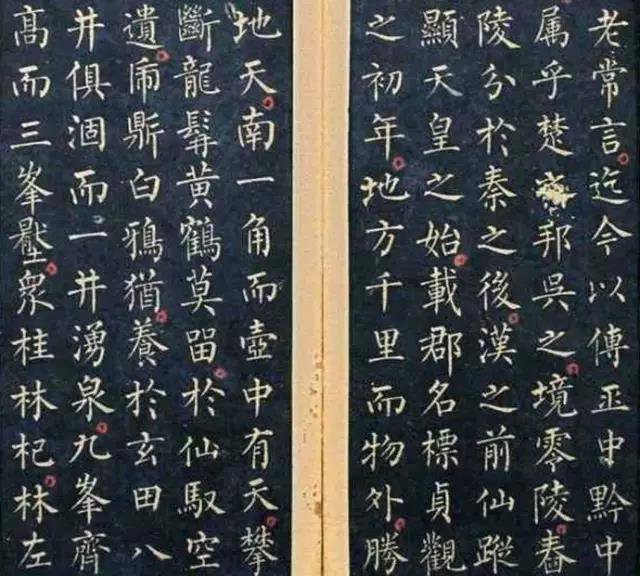 老常言迄今以傳巫中黔中
属乎楚邦吳之境零陵舂
陵分於秦之後漢之前仙蹤
顯天皇之始載郡名標貞觀
之初年地方千里而物外勝
地天南一角而壺中有天攀
斷龍髯黃鶴莫留於仙馭空
遺鬲鼎白鴉猶養於玄田八
井俱涸而一井湧泉九峯齊
高而三峯壓衆桂林杞林左